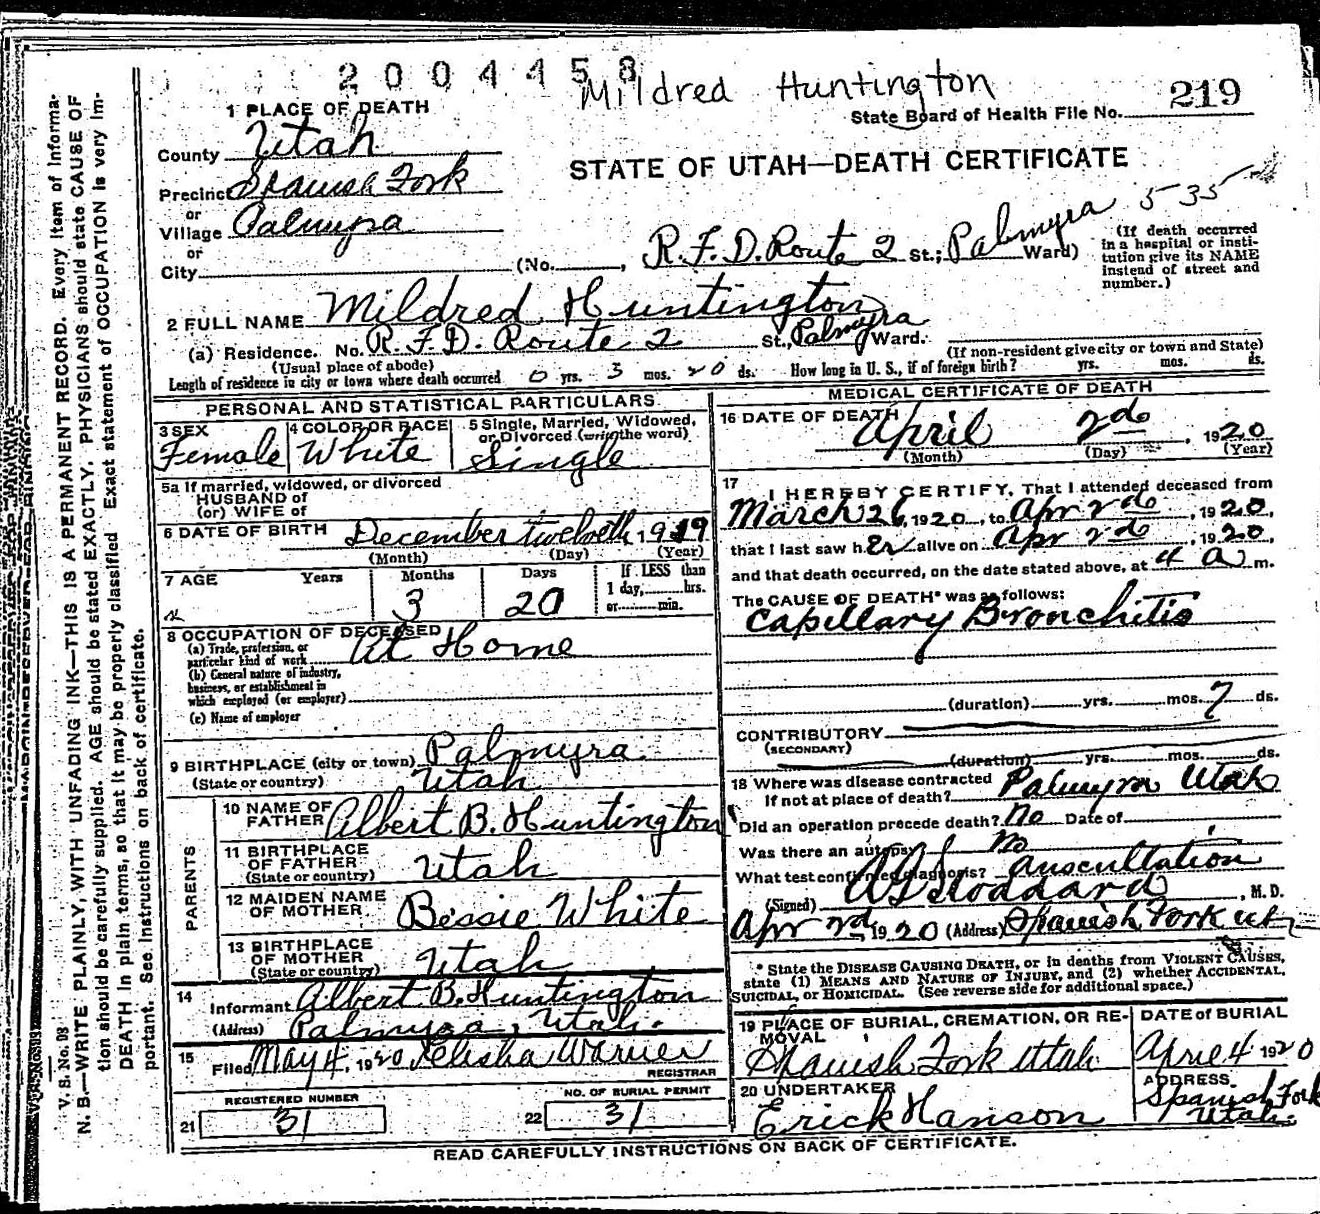 2004458
Mildred Huntington
219
State Board of Health File No.
1 PLACE OF DEATH
County Utah
STATE OF UTAH—DEATH CERTIFICATE
Precinct Spanish Fork
or
Village Palmyra
535
or
City (No. , R.F.D. Route 2 St.; Palmyra Ward)
(If death occurred
in a hospital or insti-
tution give its NAME
instead of street and
number.)
2 FULL NAME Mildred Huntington
(a) Residence. No. R.F.D. Route 2 St., Palmyra Ward.
(Usual place of abode) (If non-resident give city or town and State)
Length of residence in city or town where death occurred 0 yrs. 3 mos. 20 ds. How long in U. S., if of foreign birth? yrs. mos. ds.
PERSONAL AND STATISTICAL PARTICULARS
3 SEX Female
4 COLOR OR RACE White
5 Single, Married, Widowed,
or Divorced (write the word)
Single
5a If married, widowed, or divorced
HUSBAND of
(or) WIFE of
6 DATE OF BIRTH December twelveth 1919
(Month) (Day) (Year)
7 AGE Years Months Days If LESS than
1 day, hrs.
or min.
3 20
8 OCCUPATION OF DECEASED
(a) Trade, profession, or
particular kind of work At Home
(b) General nature of industry,
business, or establishment in
which employed (or employer)
(c) Name of employer
9 BIRTHPLACE (city or town) Palmyra
(State or country) Utah
PARENTS
10 NAME OF
FATHER Albert B. Huntington
11 BIRTHPLACE
OF FATHER Utah
(State or country)
12 MAIDEN NAME
OF MOTHER Bessie White
13 BIRTHPLACE
OF MOTHER Utah
(State or country)
14
Informant Albert B. Huntington
(Address) Palmyra, Utah.
15
Filed May 4, 1920 Warner
REGISTRAR
REGISTERED NUMBER
21 31
NO. OF BURIAL PERMIT
22 31
MEDICAL CERTIFICATE OF DEATH
16 DATE OF DEATH April 2d, 1920
(Month) (Day) (Year)
17
I HEREBY CERTIFY, That I attended deceased from
March 26, 1920, to Apr 2d, 1920,
that I last saw her alive on Apr 2d, 1920,
and that death occurred, on the date stated above, at 4 a m.
The CAUSE OF DEATH* was as follows:
Capillary Bronchitis
(duration) yrs. mos. 7 ds.
CONTRIBUTORY
(SECONDARY)
(duration) yrs. mos. ds.
18 Where was disease contracted
If not at place of death? Palmyra Utah
Did an operation precede death? No Date of
Was there an autopsy? No
What test confirmed diagnosis? Auscultation
(Signed) Stoddard, M. D.
Apr 2nd, 1920 (Address) Spanish Fork Ut
* State the DISEASE CAUSING DEATH, or in deaths from VIOLENT CAUSES,
state (1) MEANS AND NATURE OF INJURY, and (2) whether ACCIDENTAL,
SUICIDAL, or HOMICIDAL. (See reverse side for additional space.)
19 PLACE OF BURIAL, CREMATION, OR RE-
MOVAL
Spanish Fork Utah
DATE OF BURIAL
April 4 1920
20 UNDERTAKER
Erick Hanson
ADDRESS
Spanish Fork
Utah.
READ CAREFULLY INSTRUCTIONS ON BACK OF CERTIFICATE.
V. S. No. D8
N. B.—WRITE PLAINLY, WITH UNFADING INK—THIS IS A PERMANENT RECORD. Every item of informa-
tion should be carefully supplied. AGE should be stated EXACTLY. PHYSICIANS should state CAUSE OF
DEATH in plain terms, so that it may be properly classified. Exact statement of OCCUPATION is very im-
portant. See instructions on back of certificate.